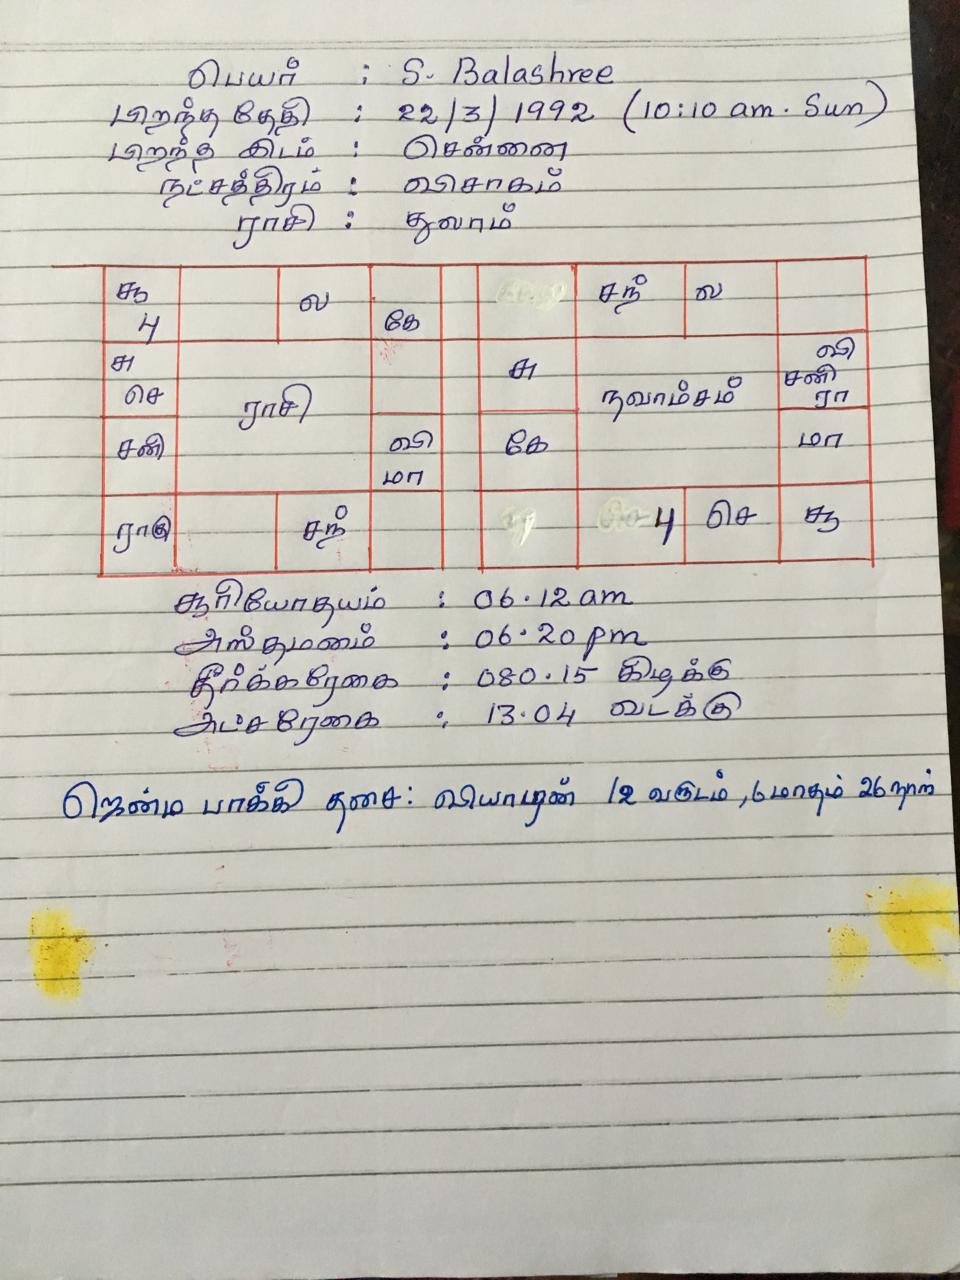 பெயர் : S. Balashree
பிறந்த தேதி : 22/3/1992 (10:10 am. Sun)
பிறந்த இடம் : சென்னை
நட்சத்திரம் : விசாகம்
ராசி : துலாம்
சூ ல சந் ல
பு கே
சு சு வி
செ ராசி நவாம்சம் சனி
ரா
சனி வி கே மா
மா
ராகு சந் பு செ சூ
சூரியோதயம் : 06.12 am
அஸ்தமனம் : 06.20 pm
தீர்க்கரேகை : 080.15 கிழக்கு
அட்சரேகை : 13.04 வடக்கு
ஜென்ம பாக்கி தசை: வியாழன் 12 வருடம், 6 மாதம் 26 நாள்